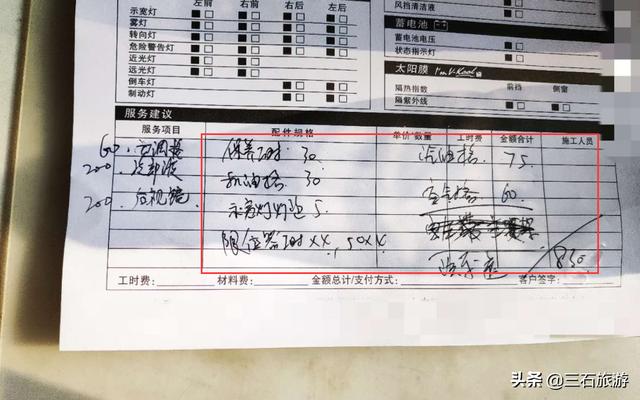 左前 右前 左后 右后
示宽灯
雾灯
转向灯
危险警告灯
近光灯
远光灯
倒车灯
制动灯
风挡清洁液
蓄电池
蓄电池电压
状态指示灯
太阳膜 I'm V-Kool
隔热指数 前挡 侧窗
隔紫外线
服务建议
服务项目 配件规格 单价/数量 工时费 金额合计 施工人员
60 空调格 保养工时 30 汽油格 75
200 冷却液 机油格 30 空气格 60
200 后视镜 示宽灯灯泡 5
限位器工时XX, 50XX
830
工时费: 材料费: 金额总计/支付方式: 客户签字:
头条 @三石旅游